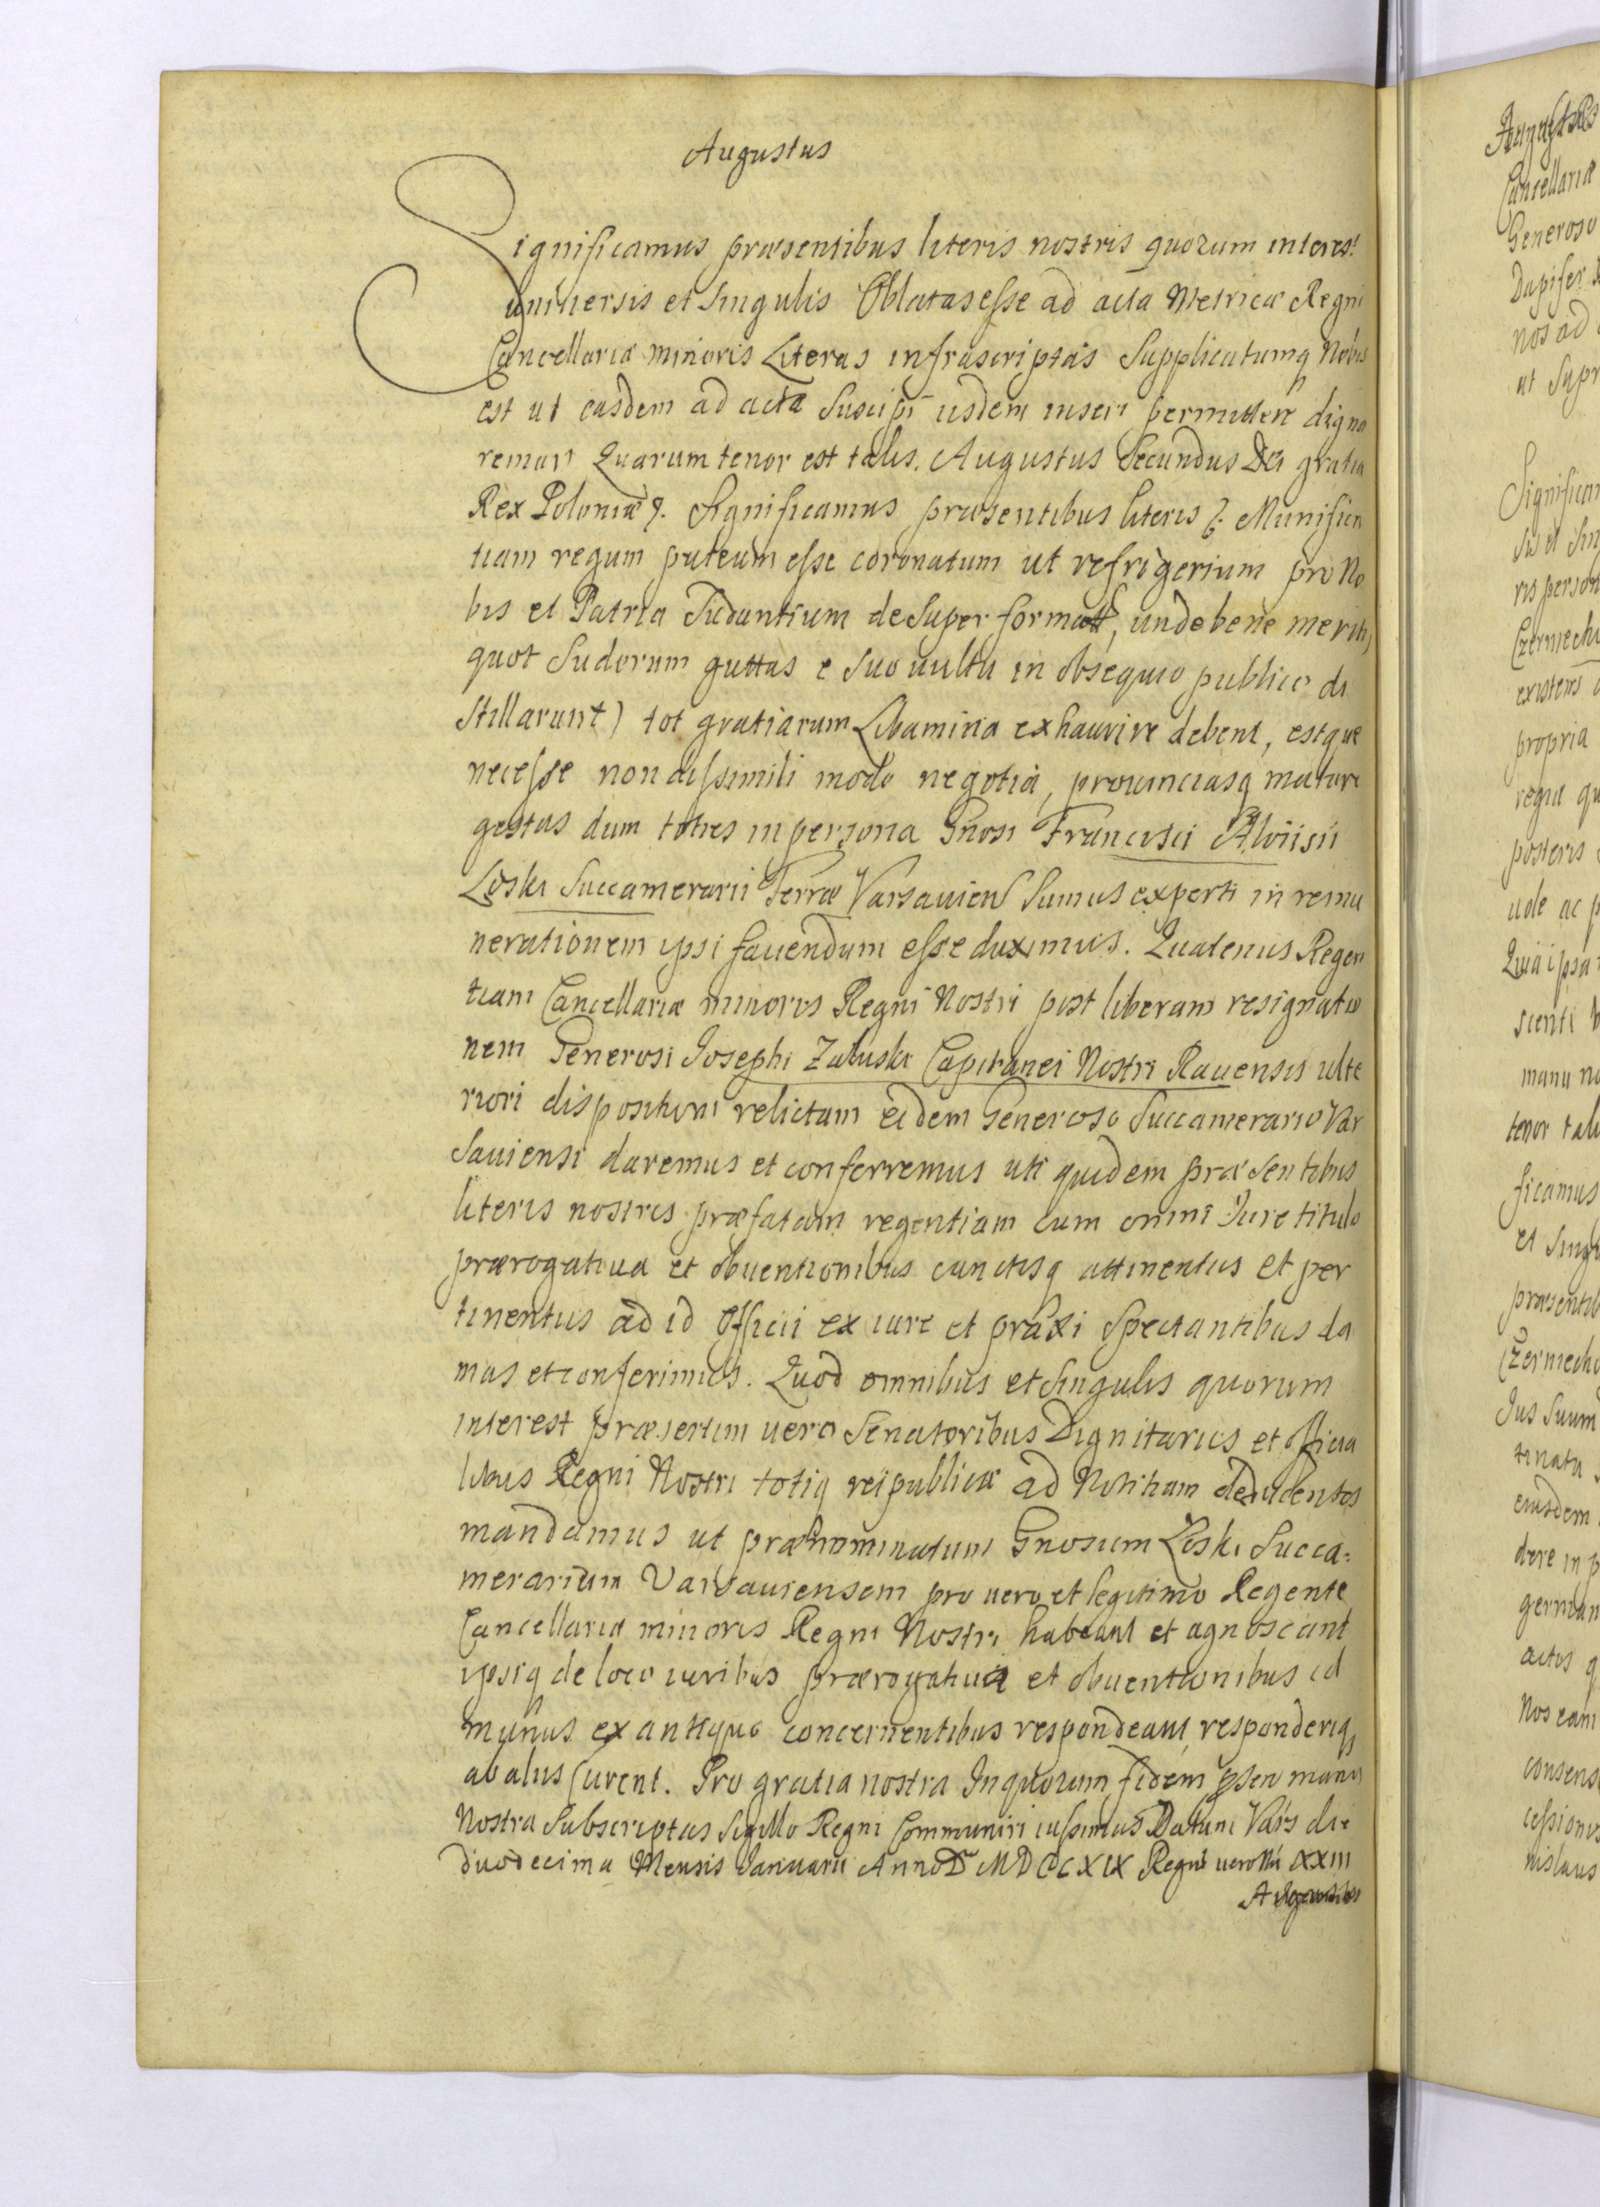 Augustus
Significamus præsentibus literis nostris quorum interest
universis et singulis Oblatas esse ad acta Metricæ Regni
Cancellariæ minoris Literas infrascriptas Supplicatumq Nobis
est ut easdem ad acta Suscipi iisdem inseri permittere digna
remur Quarum tenor est talis. Augustus Secundus Dei gratia
Rex Poloniæ &. Significamus præsentibus literis &. Munificen
tiam regum puteum esse coronatum ut refrigerium pro No
bis et Patria Sudantium desuper formatt, unde bene meriti,
quot Sudorum guttas e suo uultu in obsequio publico di
stillarunt) tot gratiarum Libamina exhaurire debent, estque
necesse non dissimili modo negotia, prouinciasq mature
gestas dum toties in persona Gnosi Francisci Aloiisii
Loski Succamerarii Terræ Varsauien Sumus experti in remu
nerationem ipsi fauendum esse duximus. Quatenus Regen
tiam Cancellariæ minoris Regni Nostri post liberam resignatio
nem Generosi Josephi Zaluski Capitanei Nostri Rauensis ulte
riori dispositioni relictam eidem Generoso Succamerario Var
sauiensi daremus et conferremus uti quidem præsentibus
literis nostris præfatam regentiam cum omni Jure titulo
prærogatiua et obuentionibus cunctisq attinentiis et per
tinentiis ad id Officii ex iure et praxi Spectantibus da
mus et conferimus. Quod omnibus et singulis quorum
interest præsertim uero Senatoribus Dignitariis et officia
libus Regni Nostri totiq reipublicæ ad Notitiam deducentes
mandamus ut prænominatum Gnosum Loski Succa:
merarium Varsauiensem pro uero et legitimo Regente
Cancellariæ minoris Regni Nostri habeant et agnoscant
ipsiq de loco iuribus prærogatiua et obuentionibus id
munus ex antiquo concernentibus respondeant, responderiq
ab aliis Curent. Pro gratia nostra In quorum fidem psen manu
Nostra Subscriptas Sigillo Regni Communiri iussimus Datum Vars die
duodecima Mensis Januarii Anno D MDCCXIX Regni uero Nri XXIII
Augustus
Cancellariæ
Generoso
Dapifer
nos ad
ut Supr
Significam
sis et Sin
ris person
Czermechu
existens
propria
regia qu
posteris
uole ac p
Quia ipsa
scienti
manu no
tenor tali
ficamus
et Singu
præsentib
Czermecho
Jus Suum
tinata
eiusdem
dere in p
german
actis q
Nos eam
consens
cessionis
nislaus